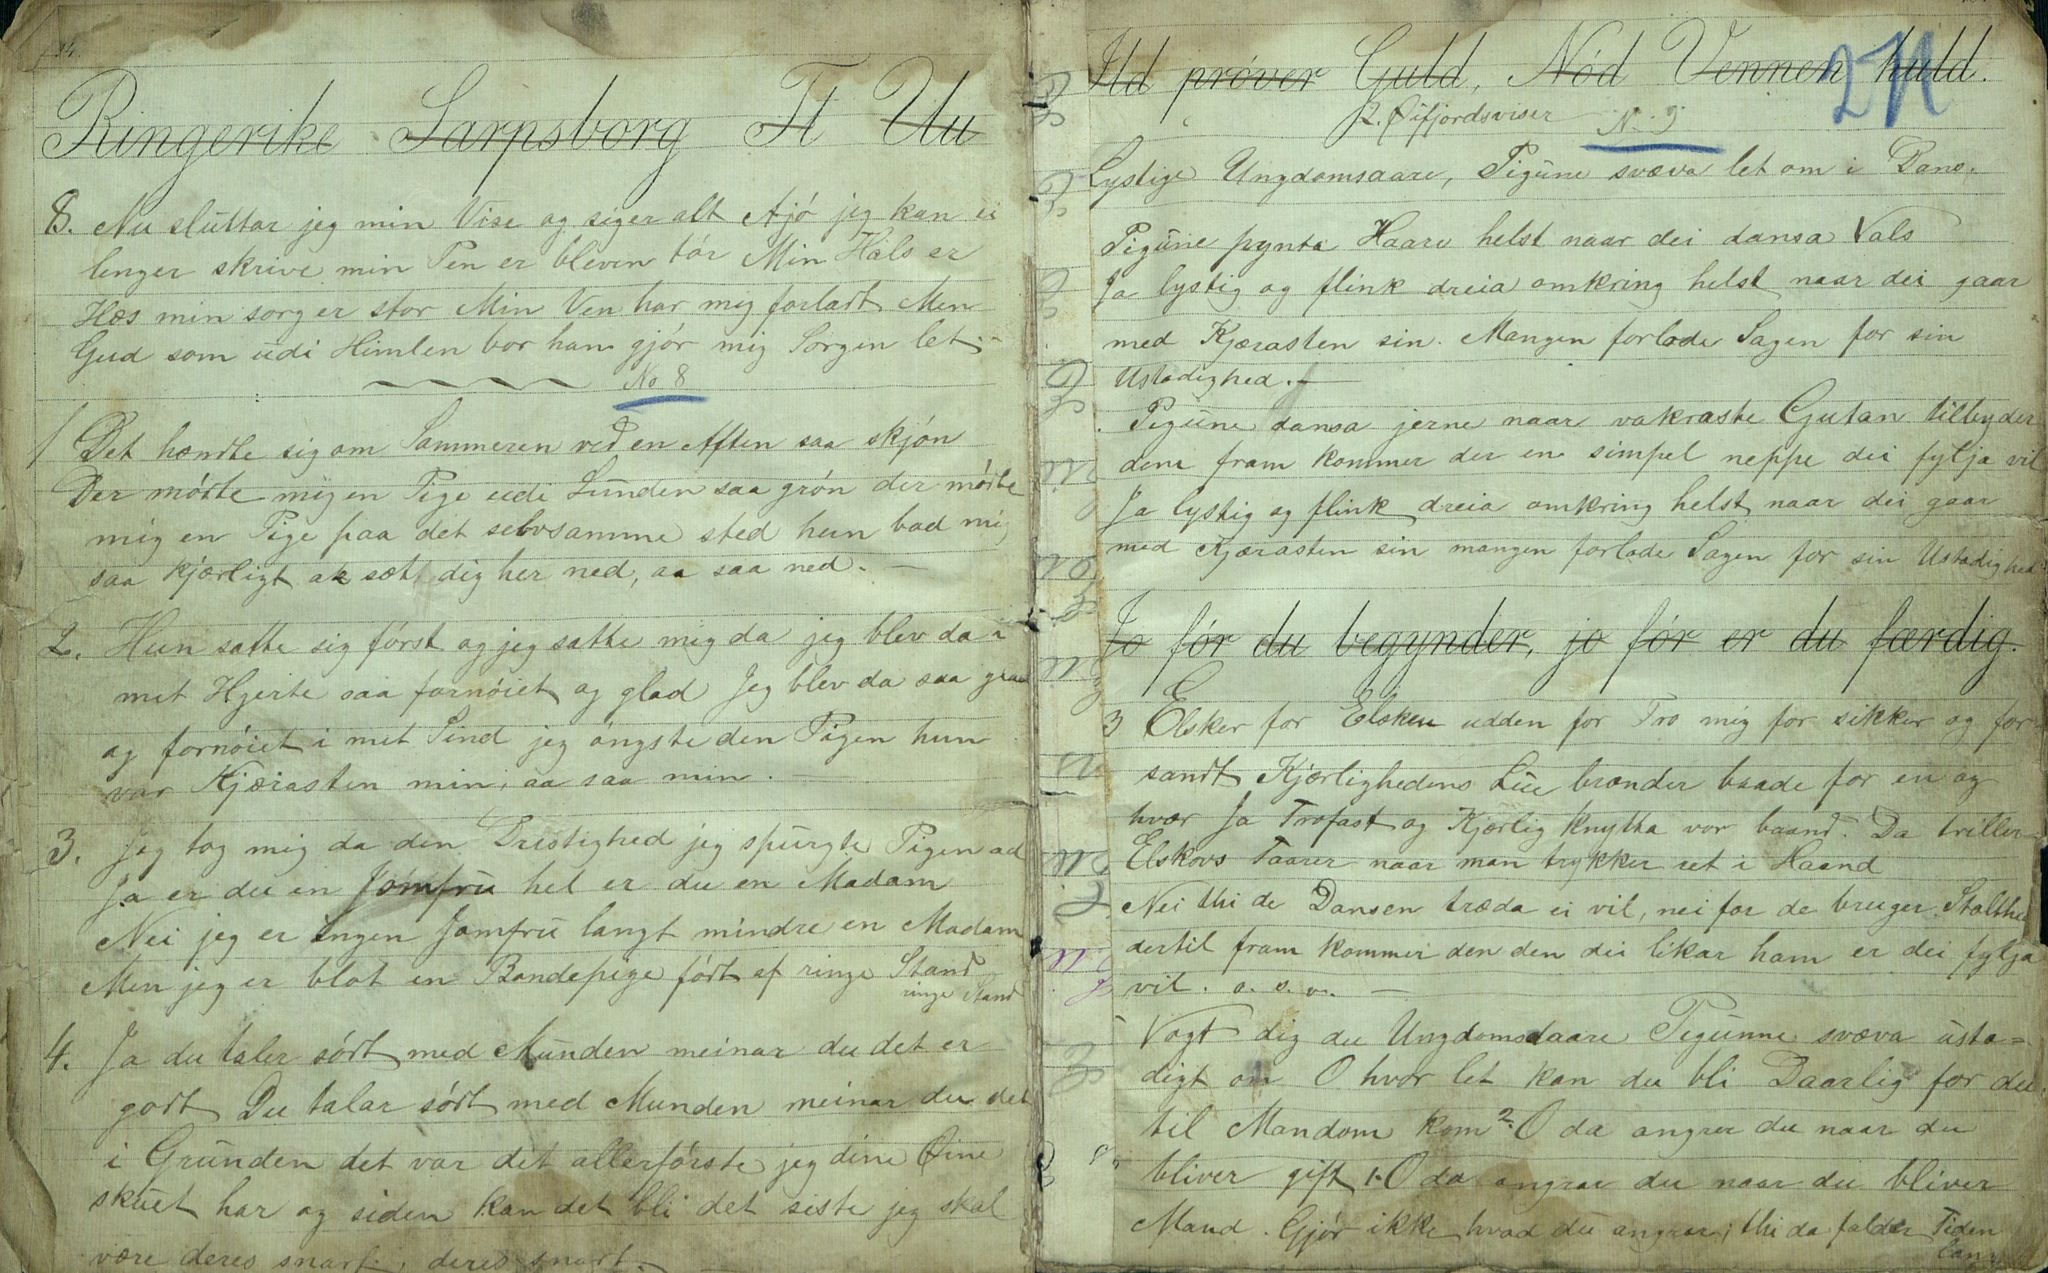 14.
Ringerike Sarpsborg Ft Uu
8. Nu sluttar jeg min Vise og siger alt Ajó jeg kan ei
lenger skrive min Pen er bleven tór Min Hals er
Hæs min sorg er stor Min Ven har mig forladt Men
Gud som udi Himlen bor han gjór mig Sorgen let
No 8
1 Det hændte sig om Sommeren ved en Aften saa skjón
Der módte mig en Pige udi Lunden saa grón der módte
mig en Pige paa det selvsamme sted hun bad mig
saa kjærligt ak sætt dig her ned, aa saa ned. —
2. Hun satte sig fórst og jeg satte mig da jeg blev da i
mit Hjerte saa fornóiet og glad Jeg blev da saa glad
og fornóiet i mit Sind jeg óngste den Pigen hun
var Kjærasten min, aa saa min. —
3. Jeg tog mig da den Dristighed jeg spurgte Pigen ad
Ja er du en Jomfru hel er du en Madam
Nei jeg er Ingen Jomfru langt mindre en Madam
Men jeg er blot en Bondepige fódt af ringe Stand
ringe Stand
4. Ja du taler sódt med Munden meinar du det er
godt Du talar sódt med Munden meinar du det
i Grunden det var det allerfórste jeg dine Øine
skuet har og siden kan det bli det siste jeg skal
være deres snart, deres snart. —
Ild próver Guld, Nód Vennen huld.
2. Øifjordsviser No 9
2N
Lystige Ungdomsaare, Pigune svæva let om i Dans.
Pigune pynta Haare helst naar dei dansa Vals
Ja lystig og flink dreia omkring helst naar dei gaar
med Kjærasten sin. Mangen forlode Sagen for sin
Ustadighed. —
Pigune dansa jerne naar vakraste Gutan tilbyder
dem fram kommer der en simpel neppe dei fylja vil
Ja lystig og flink dreia omkring helst naar dei gaar
med Kjærasten sin mangen forlode Sagen for sin Ustadighed
Jo fór du begynder, jo fór er du færdig.
3 Elsker for Elsker udden for Tro mig for sikker og for
sandt Kjærlighedens Lue brænder baade for en og
hvær Ja Trofast og Kjærlig knytta vor baand. Da triller
Elskovs Taarer naar man trykker ret i Haand
Nei thi de Dansen træda ei vil, nei for de bruger Stolthed
dertil fram kommer den den dei likar ham er dei fylja
vil. o. s. v. —
Vogt dig du Ungdomsdaare Pigunne svæva usta=
digt om O hvor let kan du bli Daarlig for du
til Mandom kom 2. O da angrer du naar du
bliver gift 1. O da angrar du naar du bliver
Mand. Gjór ikke hvad du angrar, thi da falder Tiden
lang